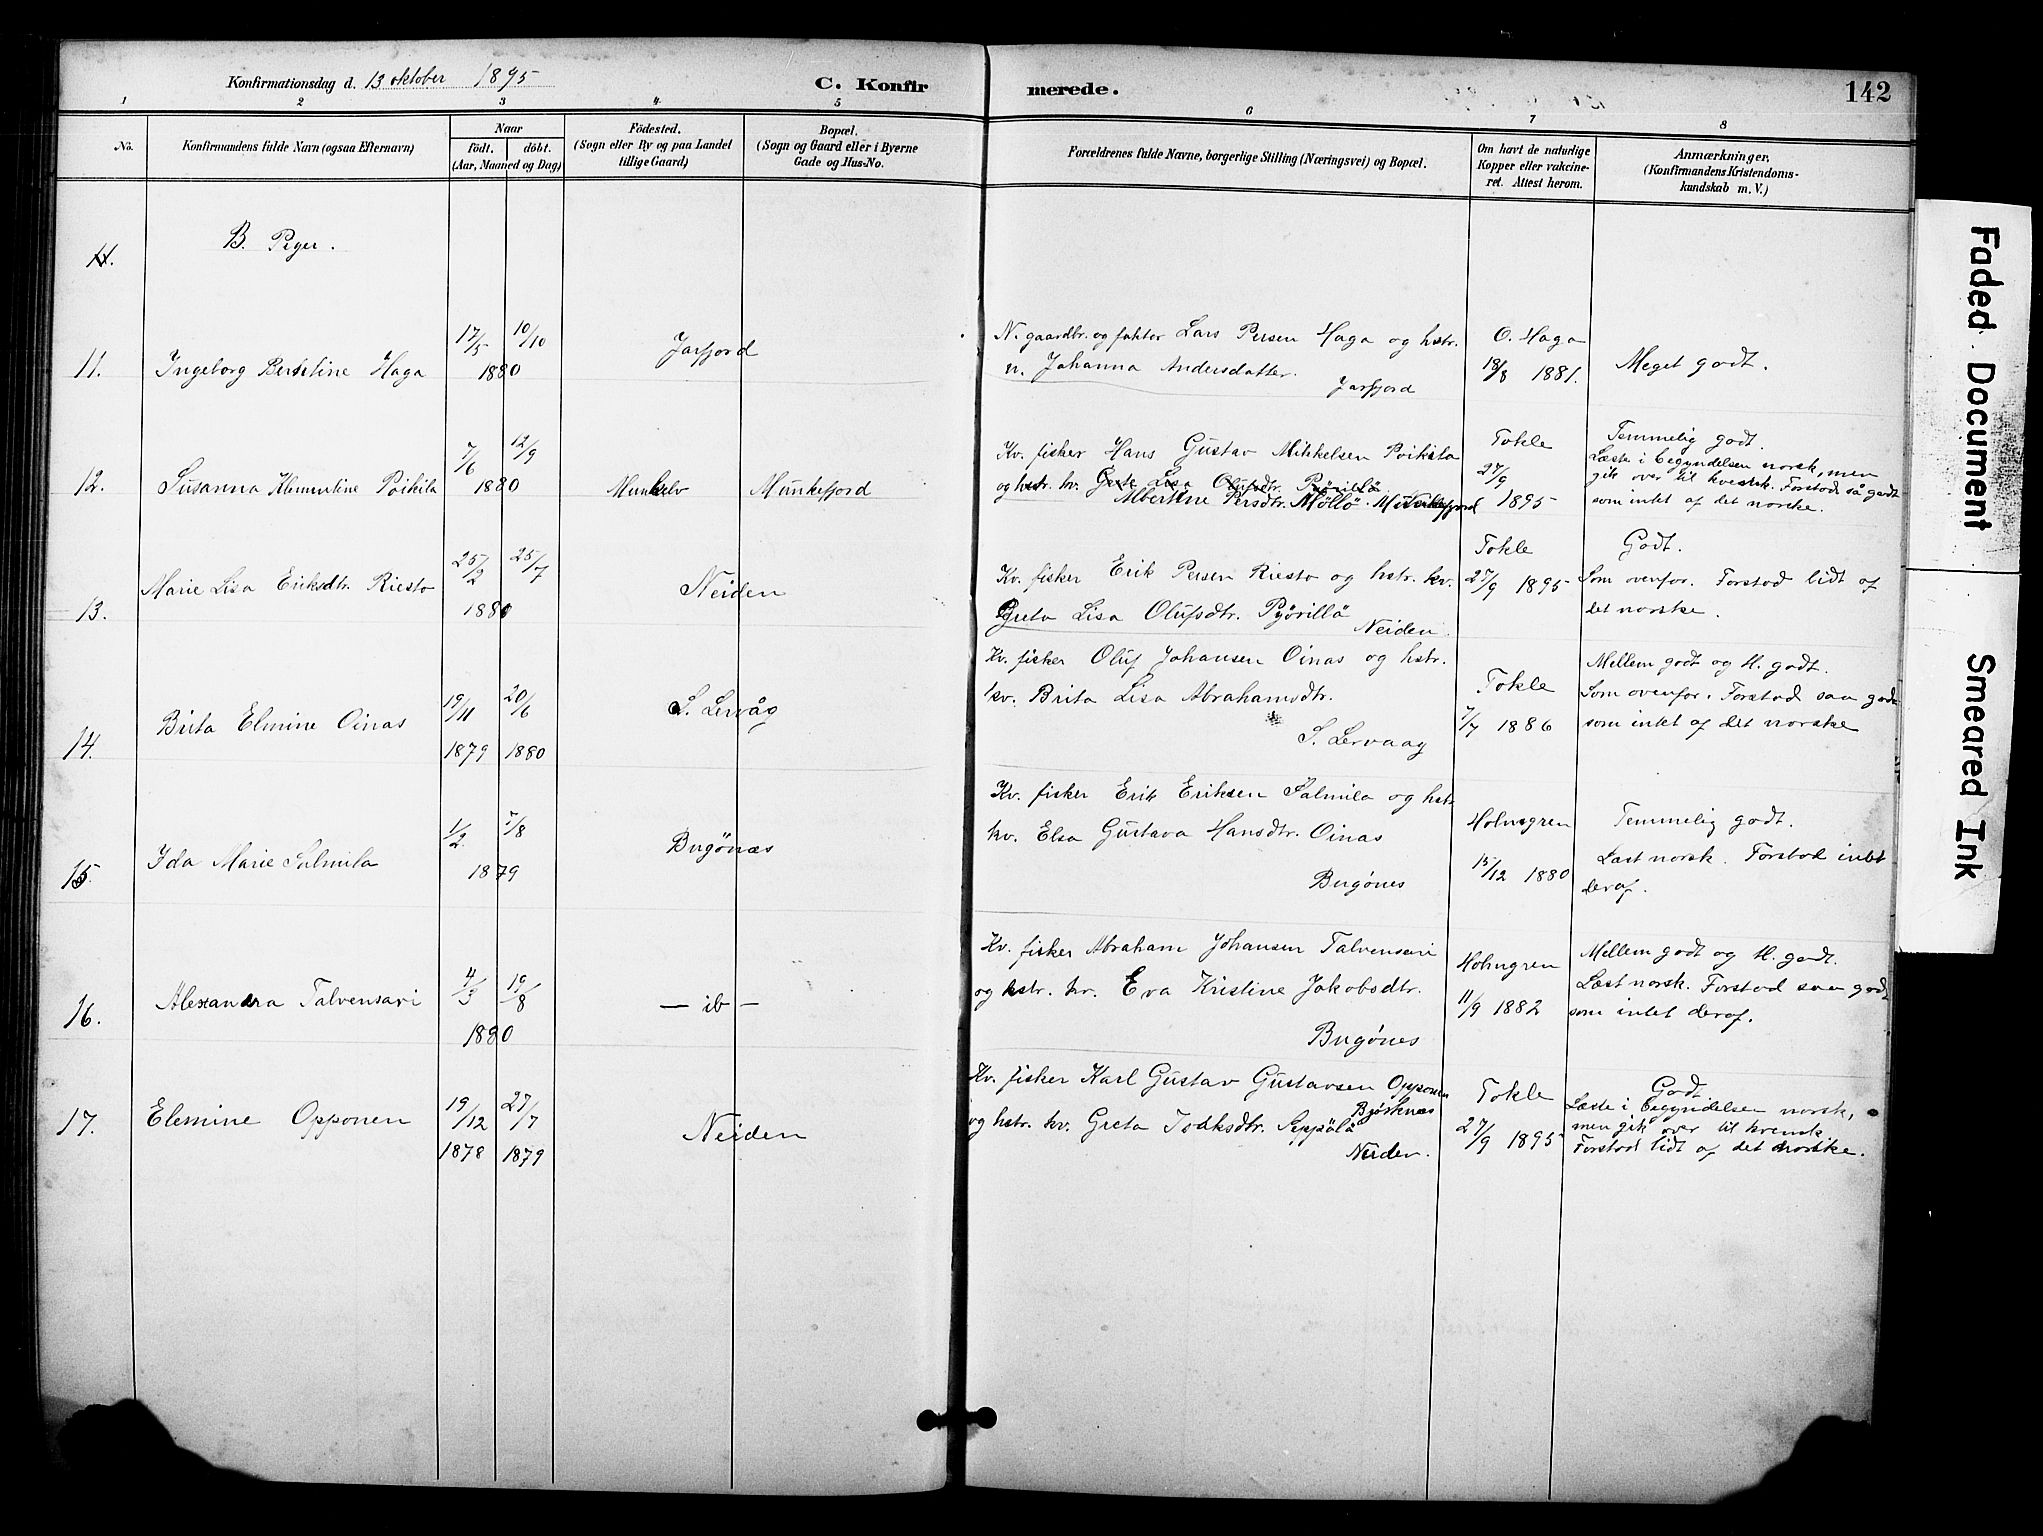 Konfirmationsdag d. 13 oktober 1895
C. Konfirmerede.
142
1 2 3 4 5 6 7 8
No.
Konfirmandens fulde Navn (ogsaa Efternavn)
Naar
födt. döbt.
(Aar, Maaned og Dag)
Födested.
(Sogn eller By og paa Landet
tillige Gaard)
Bopæl.
(Sogn og Gaard eller i Byerne
Gade og Hus-No.
Forældrenes fulde Navne, borgerlige Stilling (Næringsvei) og Bopæl.
Om havt de naturlige
Kopper eller vakcine-
ret. Attest herom.
Anmærkninger,
(Konfirmandens Kristendoms-
kundskab m. V.)
B. Piger.
11.
Ingeborg Berntine Haga
17/5 10/10
1880
Jarfjord
N. gaardbr. og fakter Lars Persen Haga og hstr.
n. Johanna Andersdatter.
Jarfjord
O. Haga
18/8 1881.
Meget godt.
12.
Susanna Klementine Poikila
7/6 12/9
1880
Munkelv
Munkefjord
Kv. fisker Hans Gustav Mikkelsen Poikila
og hstr. kv. Greta Lisa Olufsdtr. Pyörillä
Albertine Persdtr. Möllö. Munkefjord
Tokle
27/9
1895
Temmelig godt.
Læste i begyndelsen norsk, men
gik over til kvensk. Forstod så godt
som intet af det norske.
13.
Marie Lisa Eriksdtr. Riesto
25/2 25/7
1880
Neiden
Kv. fisker Erik Persen Riesto og hstr. kv.
Greta Lisa Olufsdtr. Pyörillä
Neiden.
Tokle
27/9 1895
Godt.
Som ovenfor. Forstod lidt af
det norske.
14.
Brita Elmine Oinas
19/11 20/6
1879 1880
S. Lervåg
Kv. fisker Oluf Johansen Oinas og hstr.
kv. Brita Lisa Abrahamsdtr.
S. Lervaag
Tokle
7/7 1886
Mellem godt og M. godt.
Som ovenfor. Forstod saa godt
som intet af det norske
15.
Ida Marie Salmila
1/2 7/8
1879
Bugönæs
Kv. fisker Erik Eriksen Salmila og hstr
kv. Elsa Gustava Hansdtr. Oinas
Bugönes
Holmgren
15/12 1880
Temmelig godt.
Læst norsk. Forstod intet
deraf.
16.
Alexandra Talvensari
4/3 19/8
1880
— ib —
Kv. fisker Abraham Johansen Talvensari
og hstr. kv. Eva Kristine Jakobsdtr.
Bugönes
Holmgren
11/9 1882
Mellem godt og M. godt.
Læst norsk. Forstod saa godt
som intet deraf.
17.
Elemine Opponen
19/12 27/7
1878 1879
Neiden
Kv. fisker Karl Gustav Gustavsen Opponen
Björknæs
og hstr. kv. Greta Isaksdtr. Seppälä
Neiden.
Tokle
27/9 1895
Godt
Læste i begyndelsen norsk,
men gik over til kvensk
Forstod lidt af det norske.
Faded Document
Smeared Ink